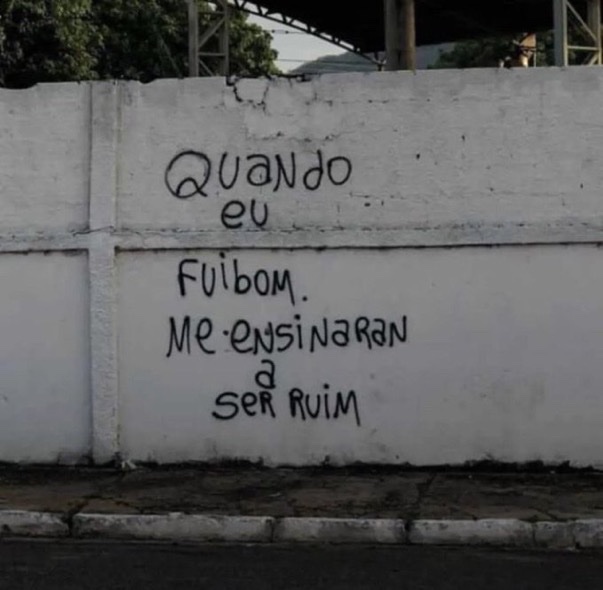 QUANdO
eU
FUibOM.
Me·eNSiNARAN
a
SeR RUiM